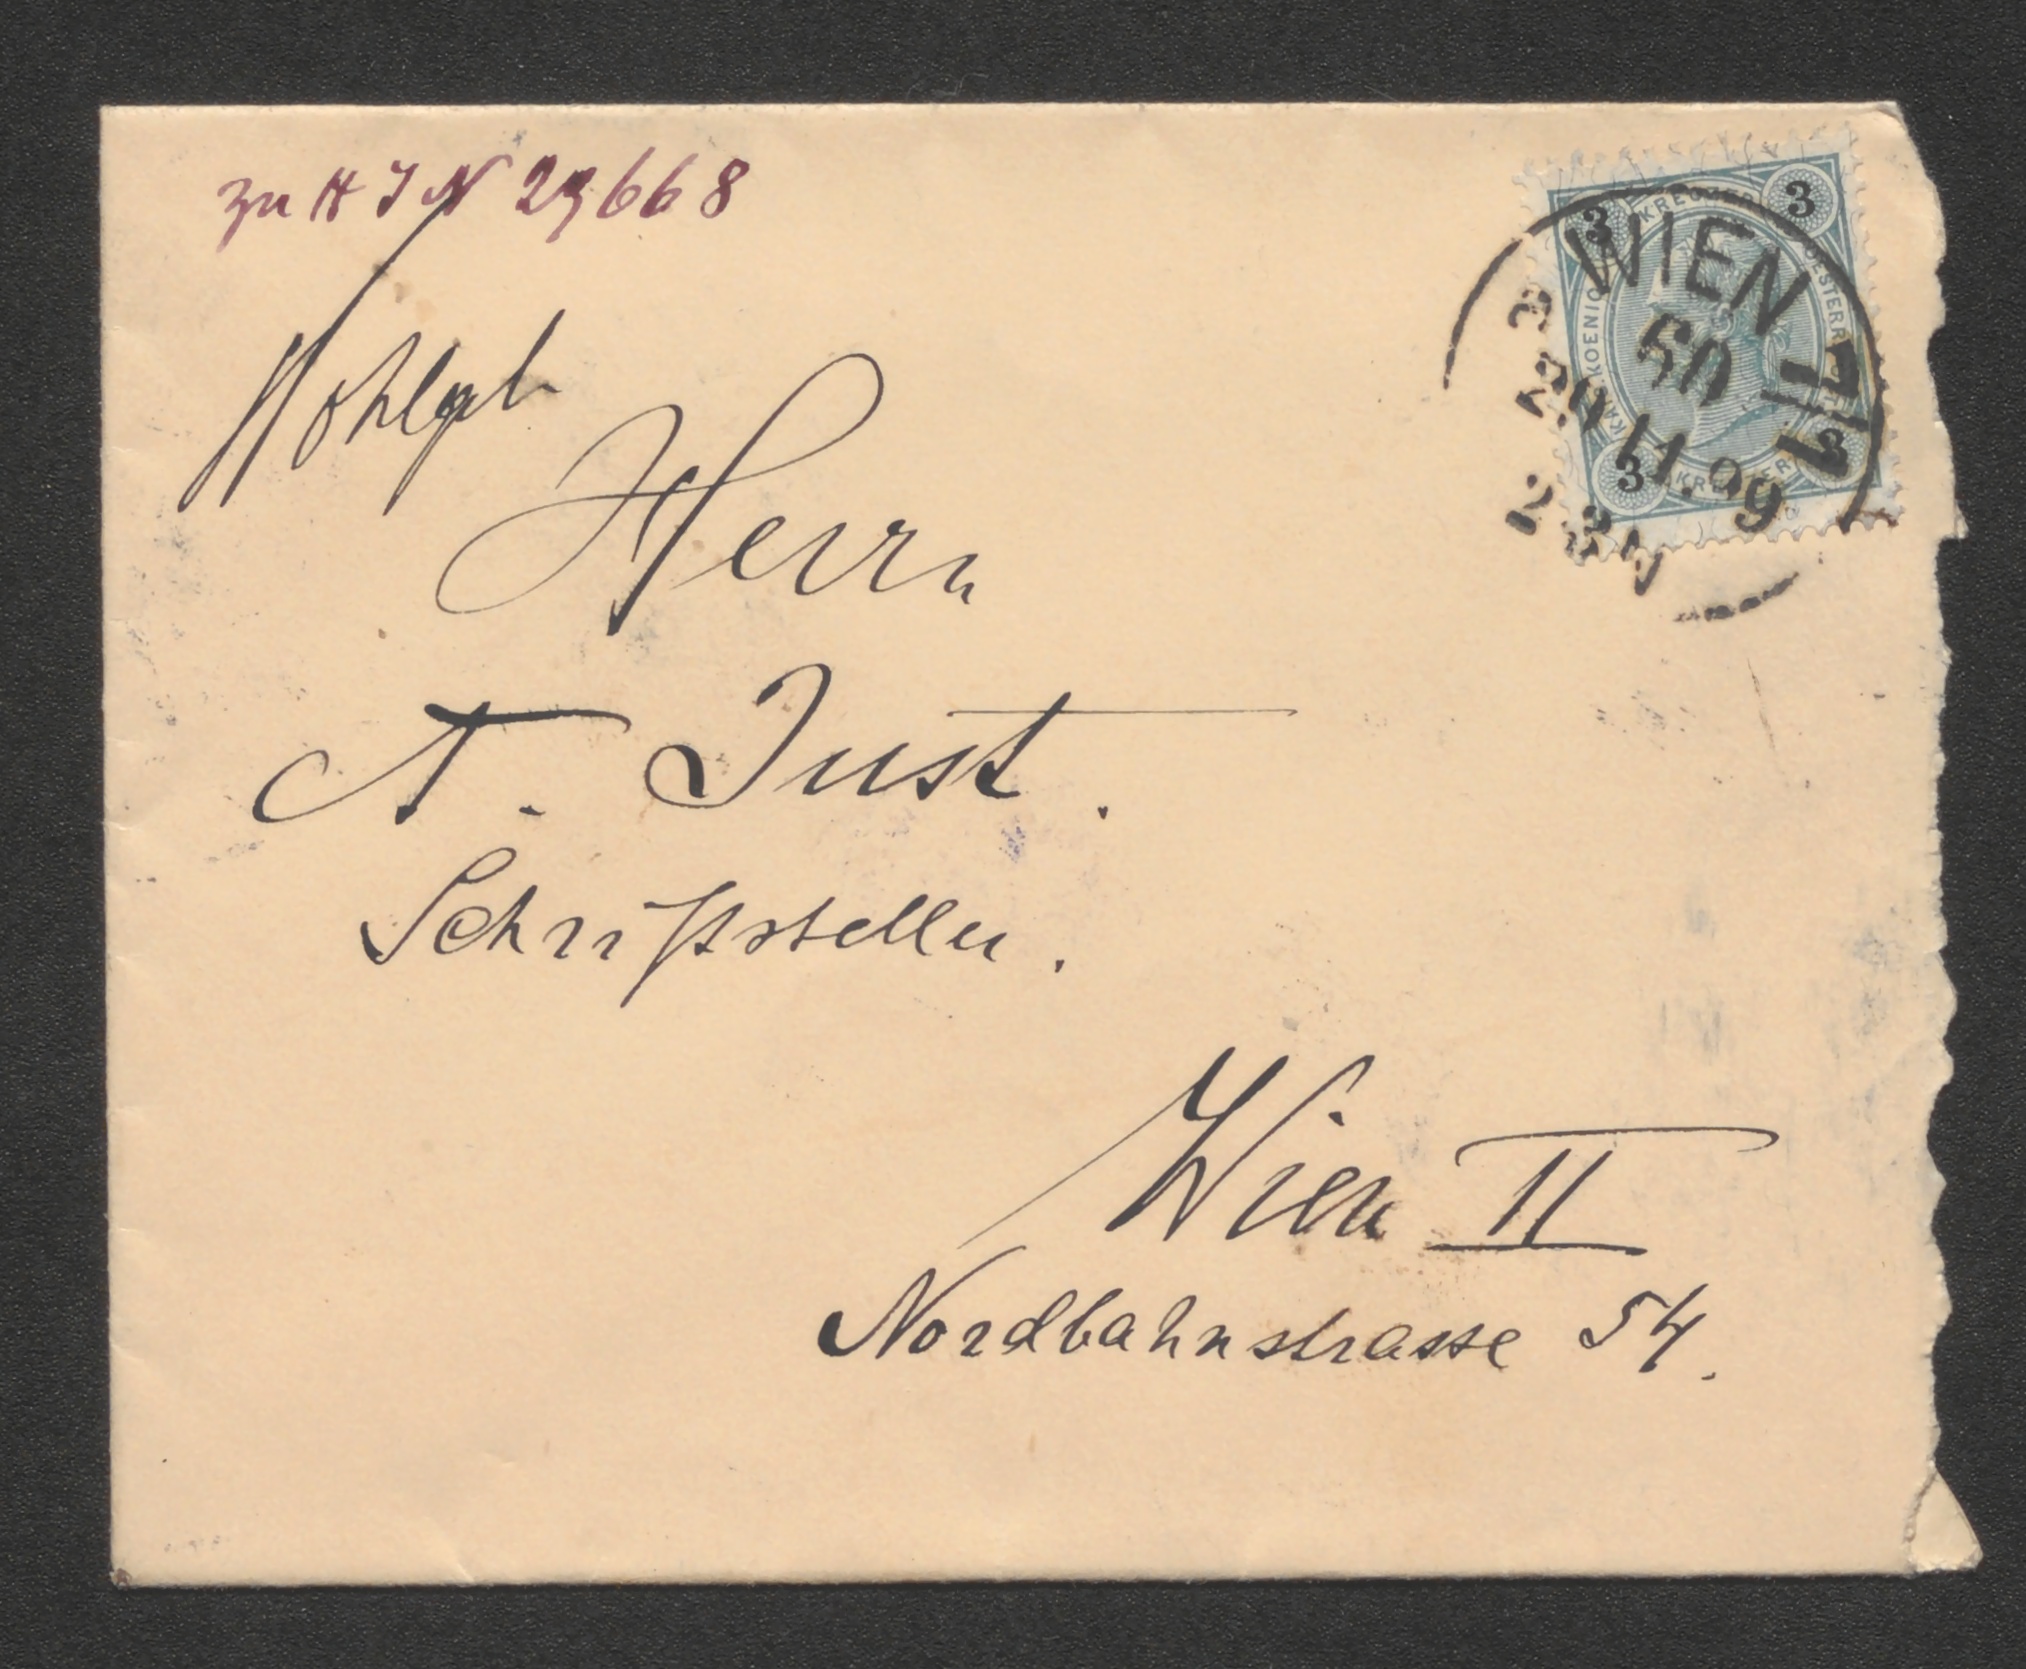 zu H I N 29668
Wohlgeb
Herrn
A. Just.
Schriftsteller.
Wien II
Nordbahnstrasse 54.
3 KREUZER 3
KAIS. KOENIGL. OESTERR. POST
3 KREUZER 3
WIEN
50
29.11.99